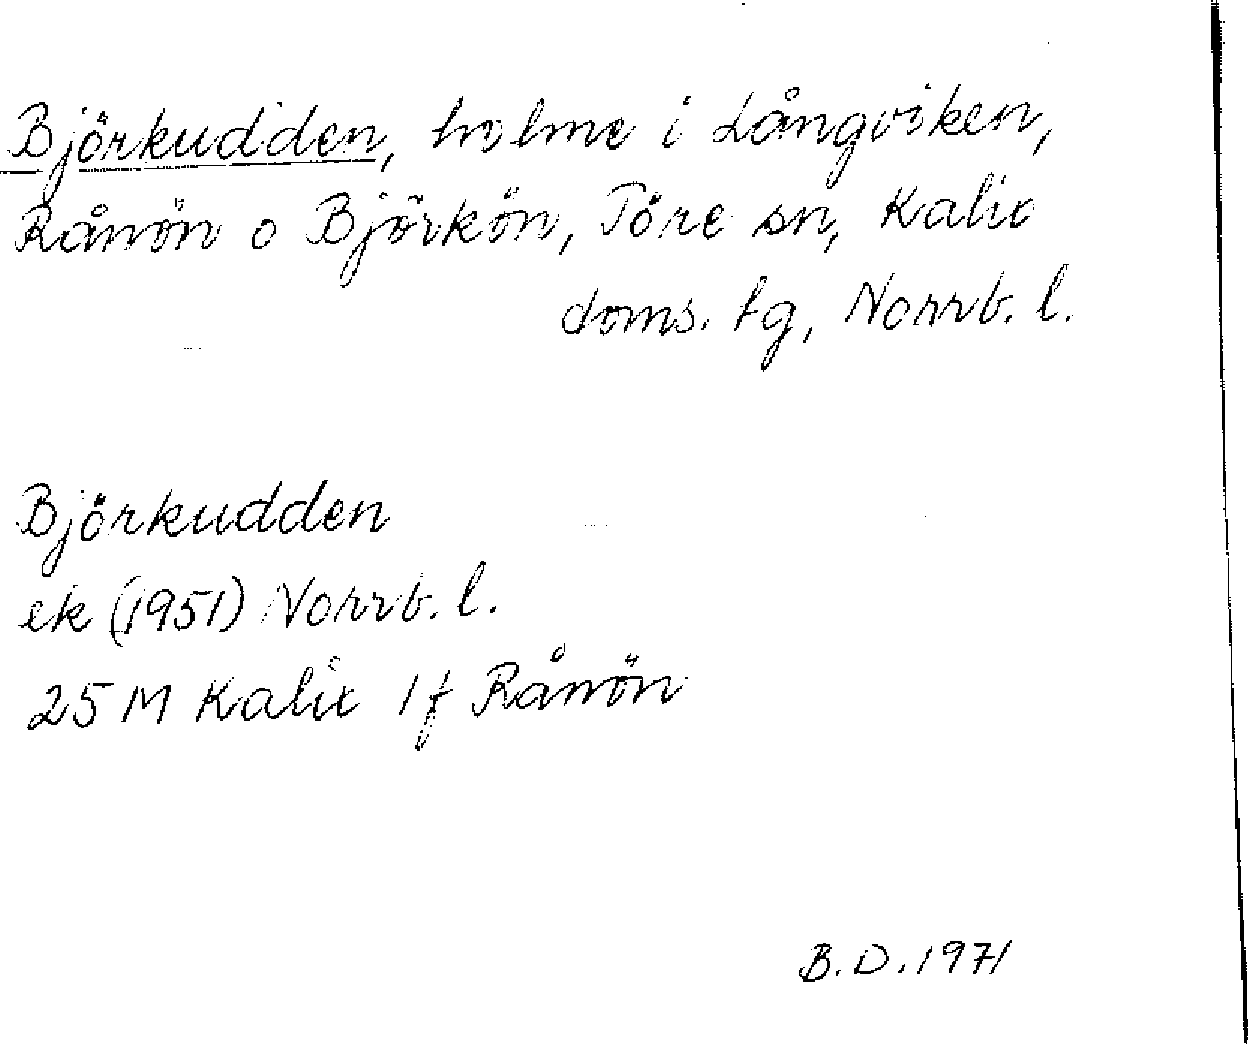 Björkudden, holme i Långviken,
Rånön o Björkön, Töre sn, Kalix
doms. tg, Norrb. l.
Björkudden
ek (1951) Norrb. l.
25 M Kalix 1f Rånön
B. D. 1971